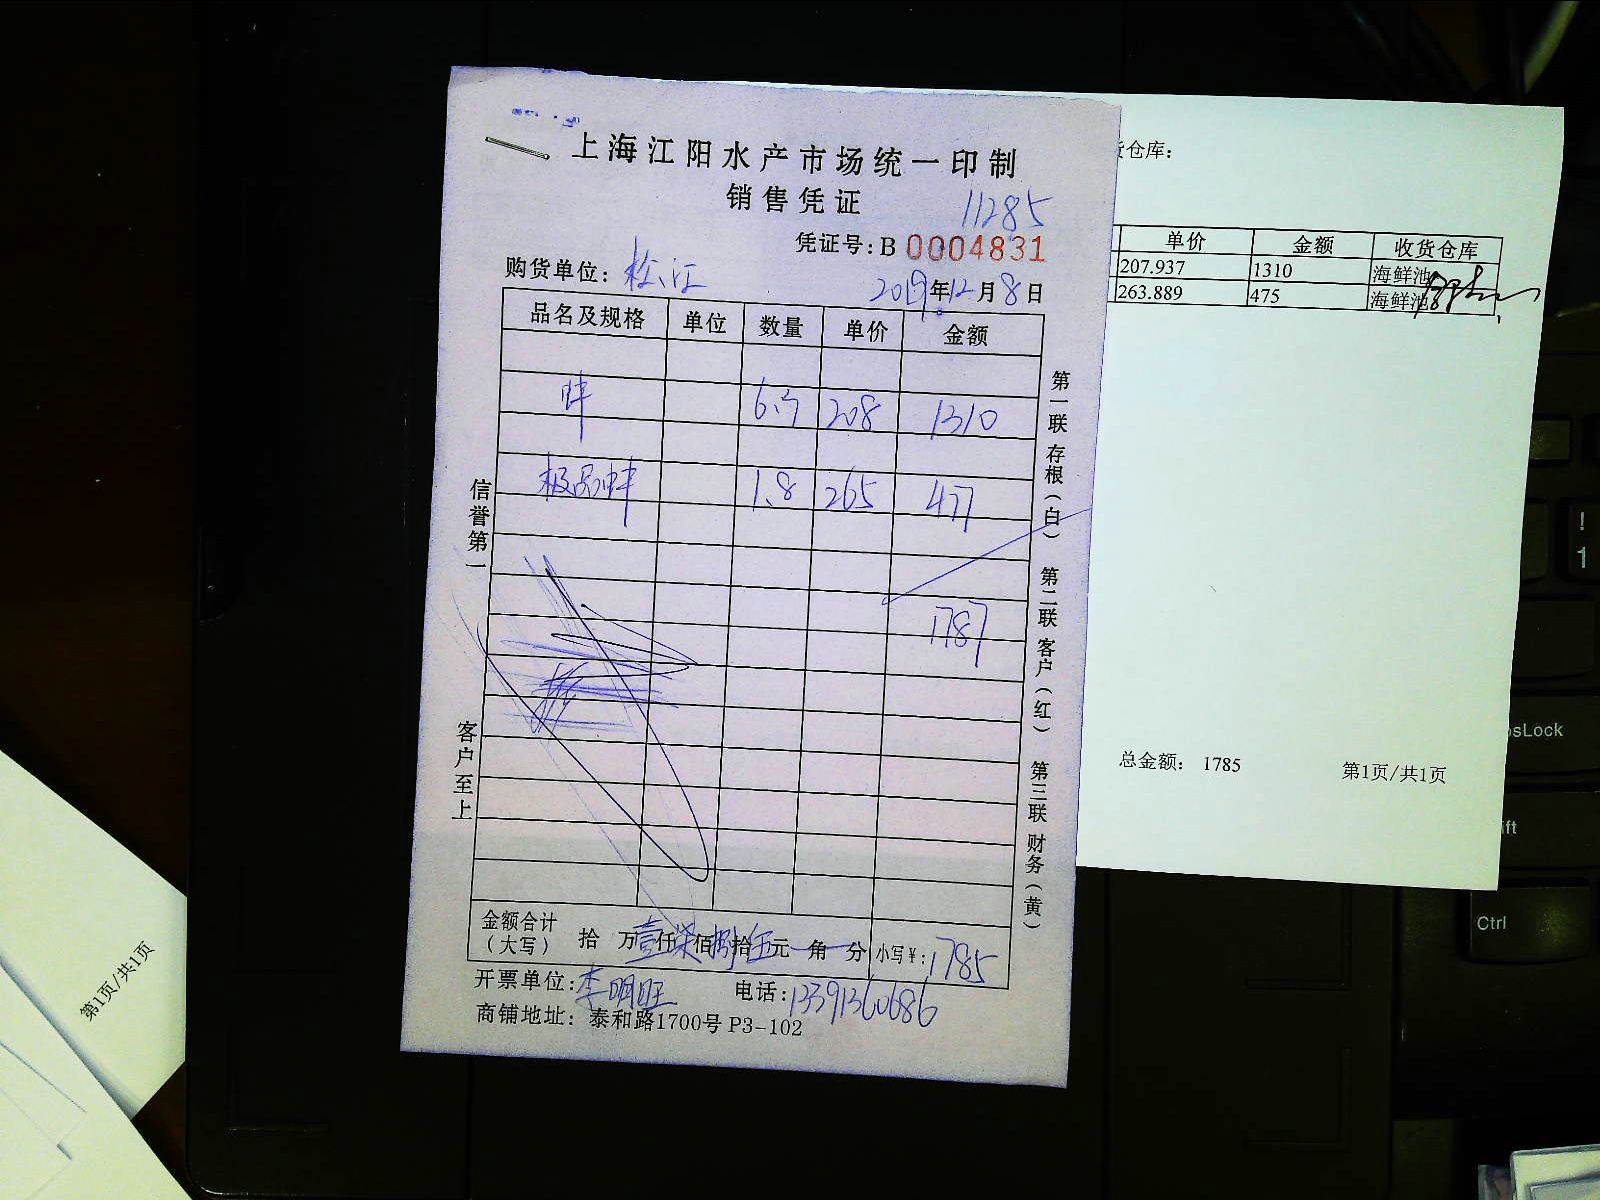 上海江阳水产市场统一印制
销售凭证
11285
凭证号:B 0004831
购货单位: 松江
2019年12月8日
品名及规格 单位 数量 单价 金额
蚌 6.3 208 1310
极品蚌 1.8 265 477
1787
金额合计(大写) 拾 万壹仟柒佰捌拾伍元 角 分 小写¥: 1785
开票单位: 李明旺 电话: 13391360686
商铺地址: 泰和路1700号 P3-102
信誉第一
客户至上
第一联 存根(白) 第二联 客户(红) 第三联 财务(黄)
货仓库:
单价 金额 收货仓库
207.937 1310 海鲜池
263.889 475 海鲜池
总金额: 1785 第1页/共1页
第1页/共1页
! 1
psLock
ift
Ctrl